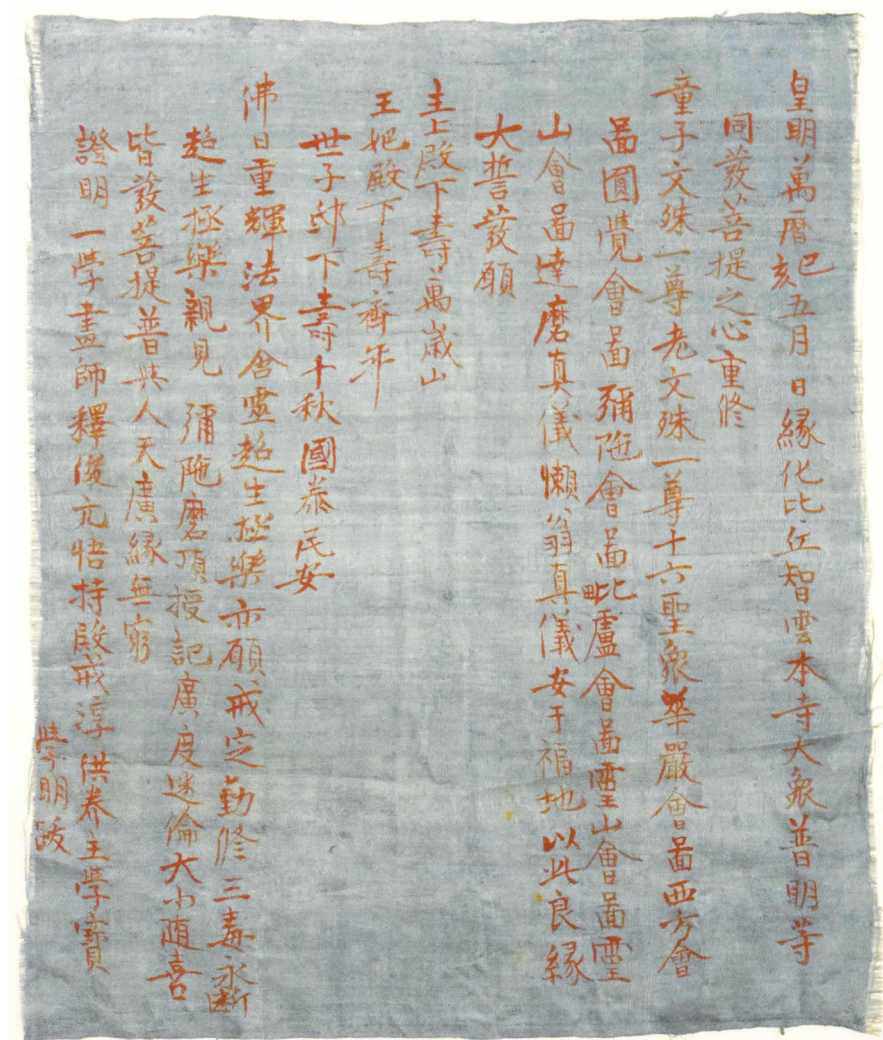 皇明萬曆己亥五月日緣化比丘智雲本寺大衆普明等
同發菩提之心重修
童子文殊一尊老文殊一尊十六聖衆華嚴會啚西方會
啚圓覺會啚彌陁會啚毗盧會啚靈山會啚靈
山會啚達磨真儀懶翁真儀安于福地以此良緣
大誓發願
主上殿下壽萬歲山
王妃殿下壽齊年
世子邸下壽千秋國泰民安
佛日重輝法界含靈超生極樂亦願戒定勤修三毒永斷
超生極樂親見彌陁磨頂授記廣度迷倫大小随喜
皆發菩提普共人天廣緣無窮
證明一學畫師釋俊元悟持殿戒淳供养主學寶
學明跋